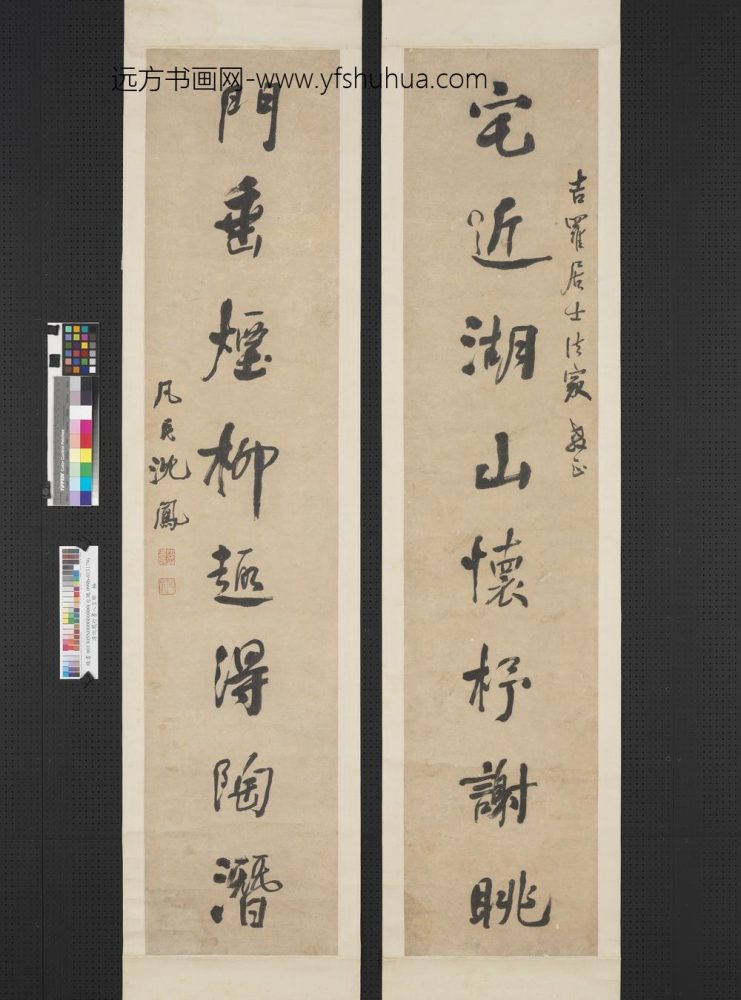 远方书画网-www.yfshuhua.com
吉羅居士法家教正
宅近湖山懷杼謝眺
門垂煙柳趣得陶潛
凡民沈鳳